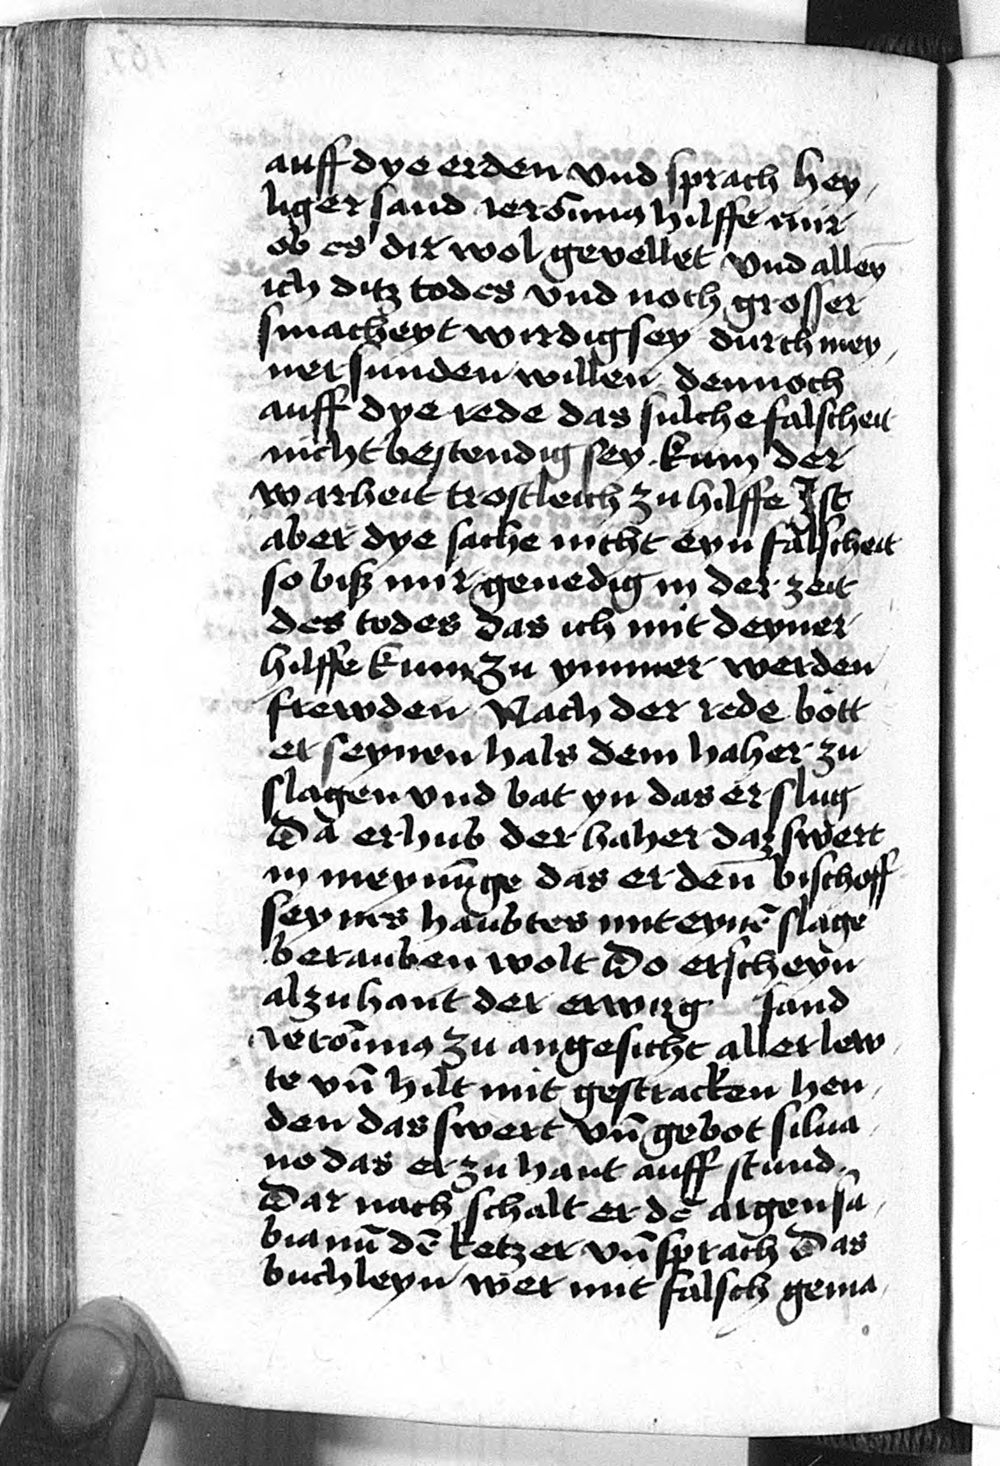 auff dye erden vnd sprach hey,
liger sand Ierōimus hilffe mir
ob es dir wol gevellet vnd alleȳ
ich ditz todes vnd noch grosser
smacheyt wirdig sey durch mey,
ner sunden willen dennoch
auff dye rede das sulche falscheit
nicht bestendig sey kum der
warheit trostleich zu hilffe Ist
aber dye sache nicht eyn falscheit
so biß mir genedig in der zeit
des todes das ich mit deyner
hilffe kum zu ymmer werden
frewden Nach der rede bott
er seynen hals dem haher zu
slagen vnd bat yn das er slug
Da erhub der haher daz swert
in meynūge das er den bischoff
seynes haubtes mit eynē slage
berauben wolt Do erscheyn
alzuhant der erwirg sand
Ierōimus zu angesicht aller lew,
te vn̄ hilt mit gestracken hen,
den das swert vn̄ gebot silua,
no das er zu hant auff stund
Dar nach schalt er dē argen sa,
bianū dē ketzer vn̄ sprach Das
buchleyn wer mit falsch gema,